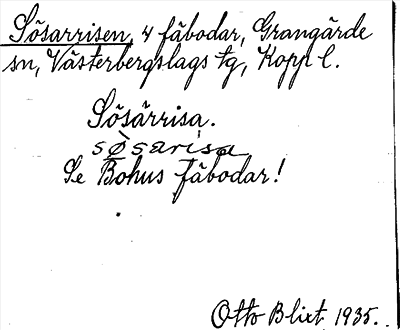 Sösarrisen, 4 fäbodar, Grangärde
sn, Västerbergslags tg, Kopp l.
Sösärrisa.
sø̀sarisa
Se Bohus fäbodar!
Otto Blixt 1935.